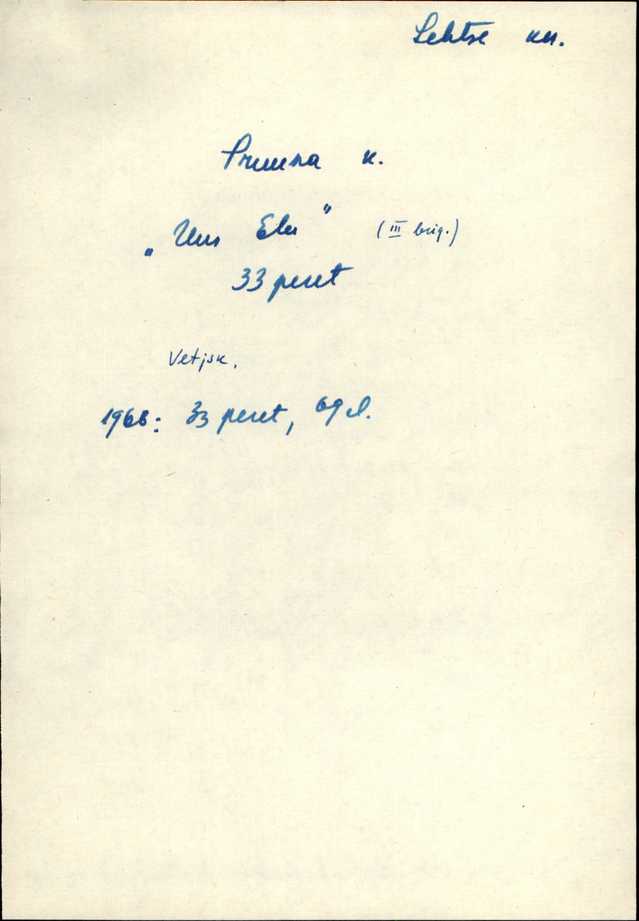 Lehtse kn.
Pruuna k.
„Uus Elu" (III brig.)
33 peret
Vetjsk.
1966: 33 peret, 69 el.